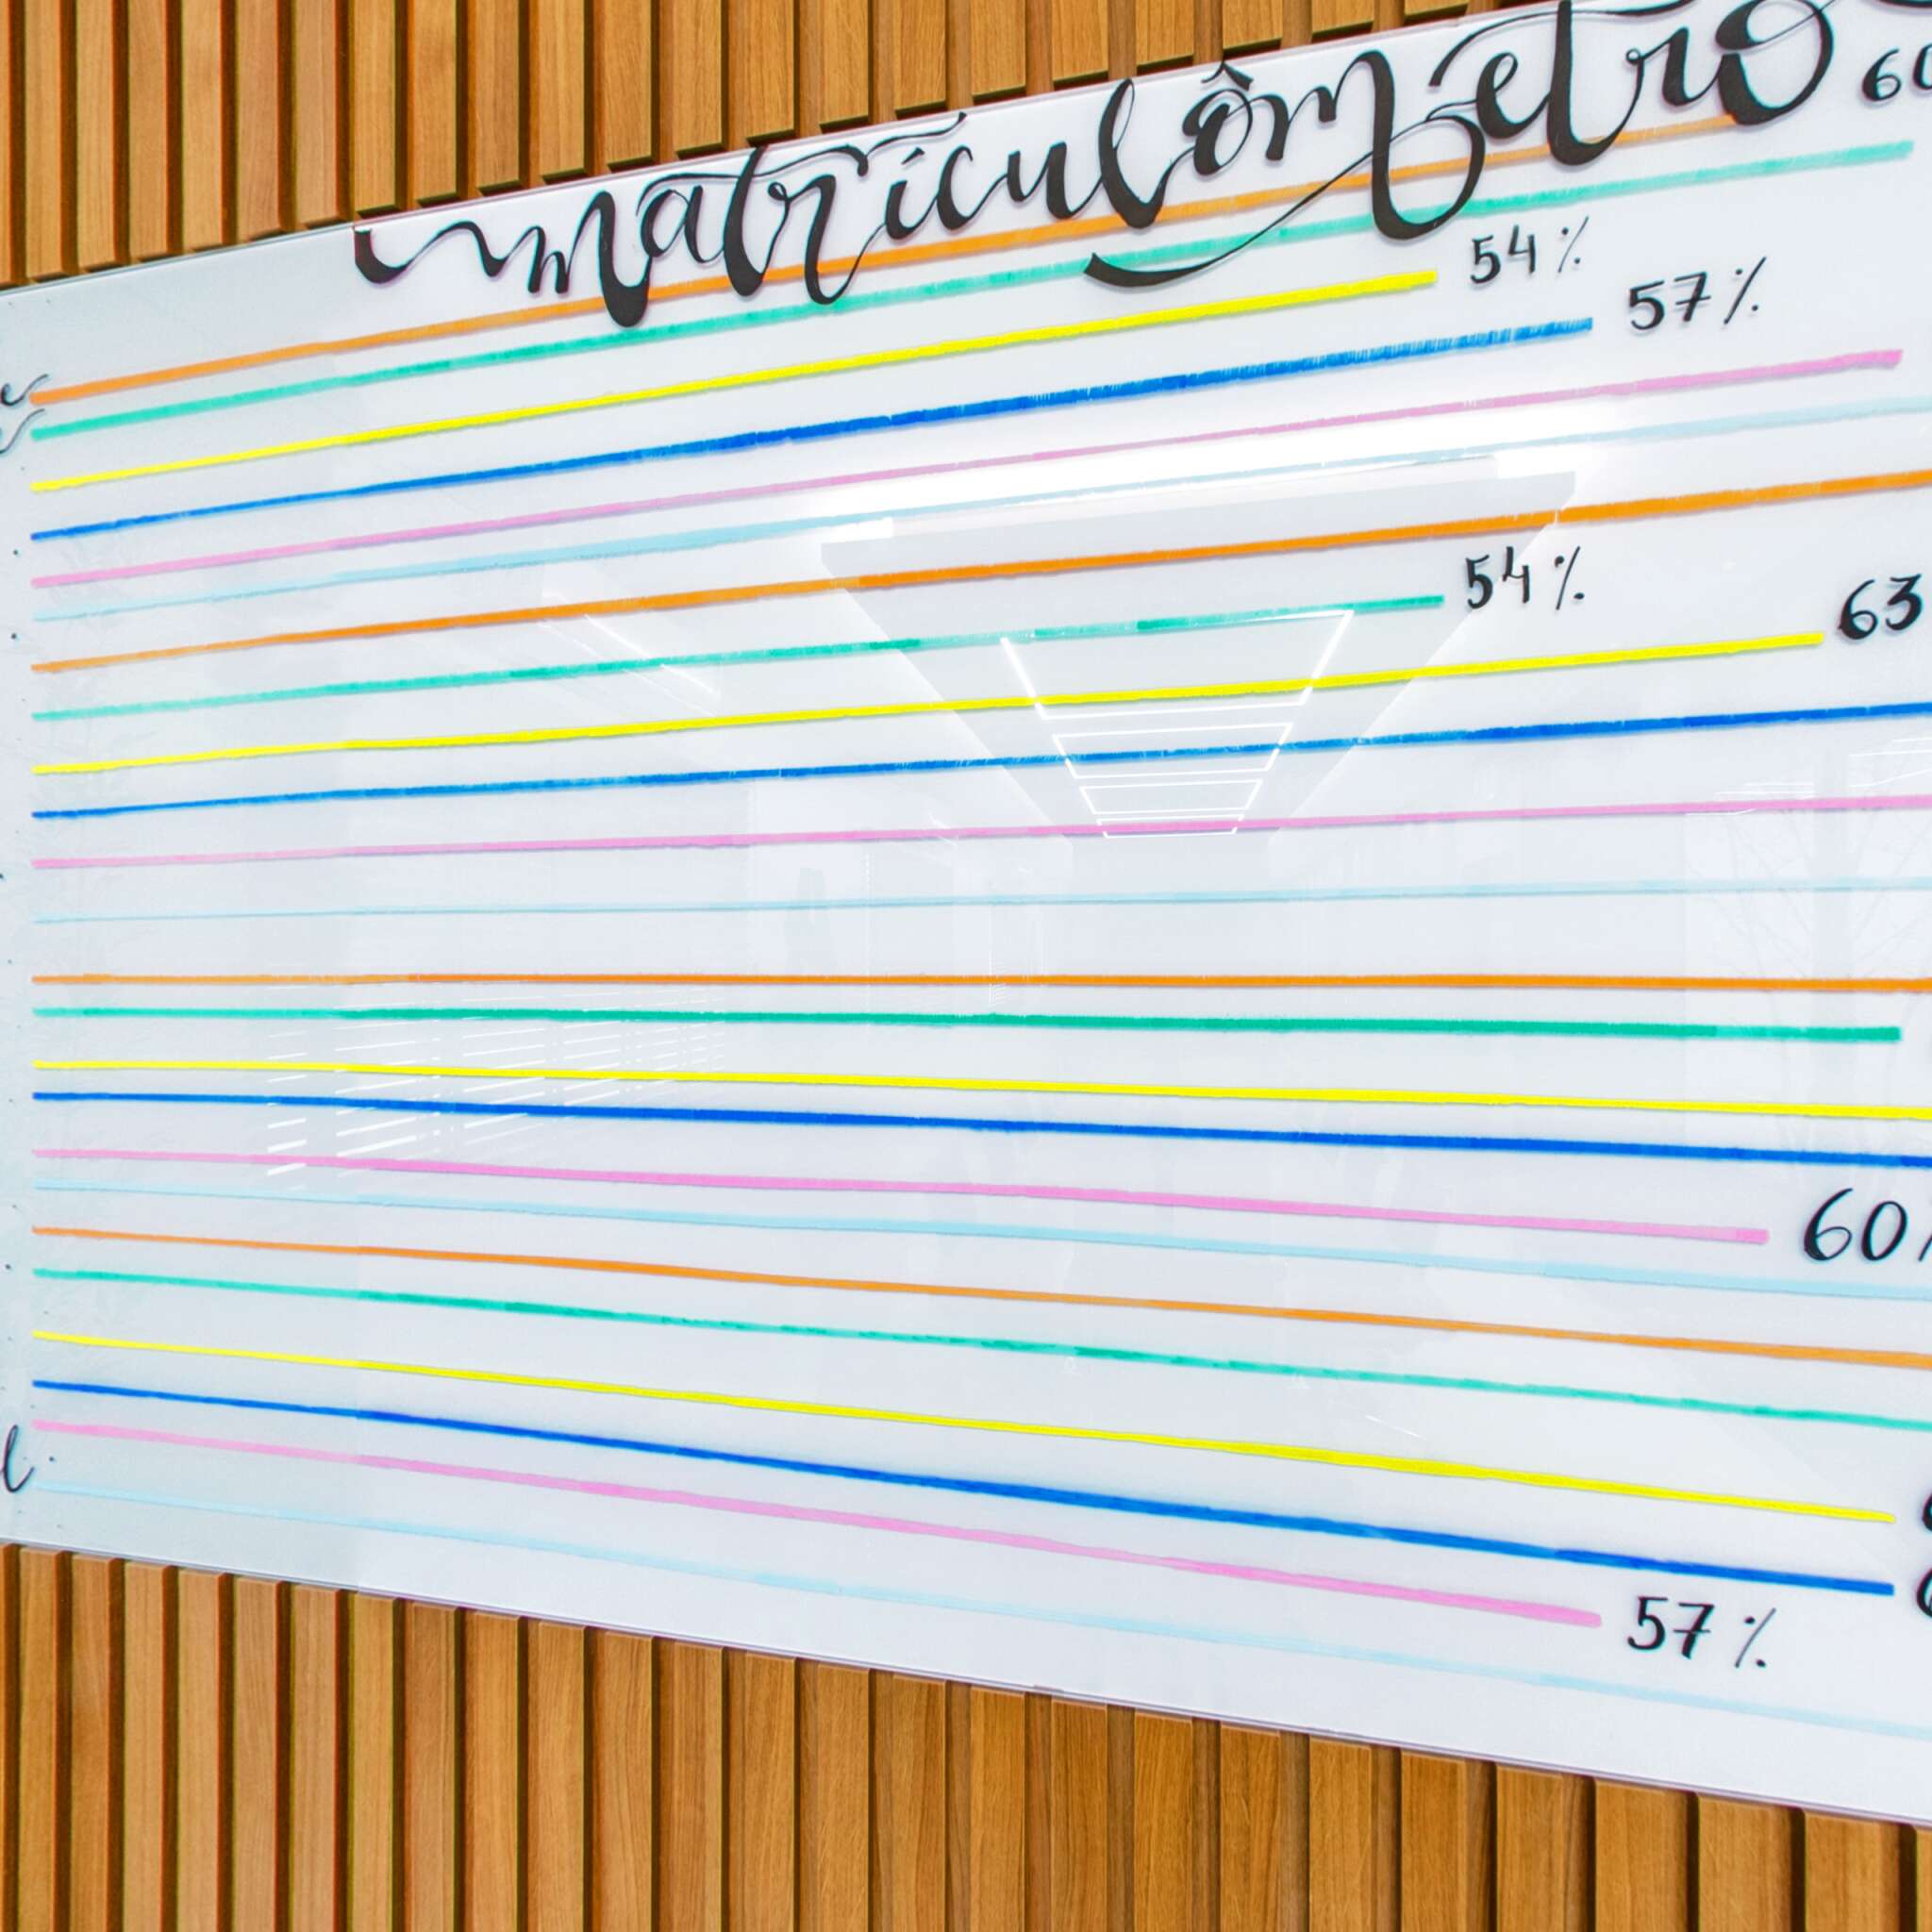 matrículômetro
54%
57%
54%
63
60
57%